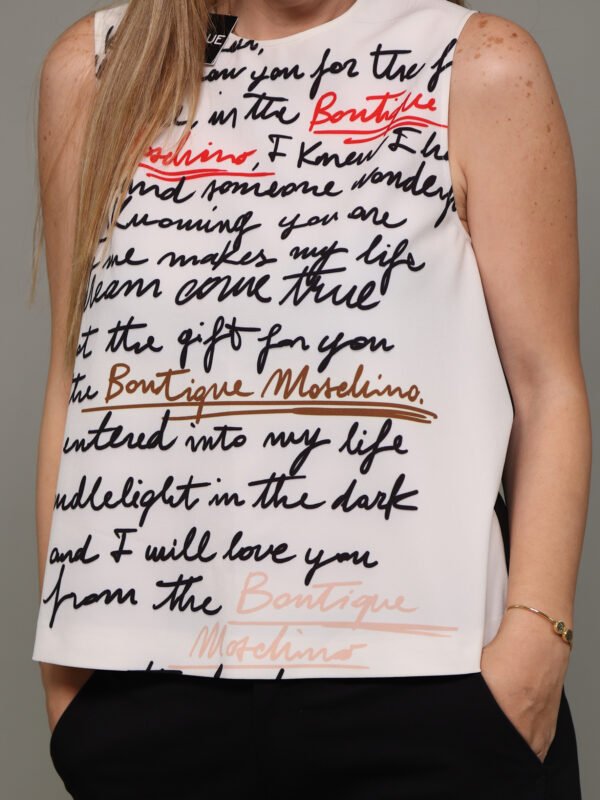 UE
you for the f
in the Boutique
, I knew I h
nd someone wonderf
Knowing you are
me makes my life
eam come true
t the gift for you
the Boutique Moschino.
entered into my life
ndlelight in the dark
and I will love you
from the Boutique
Moschino